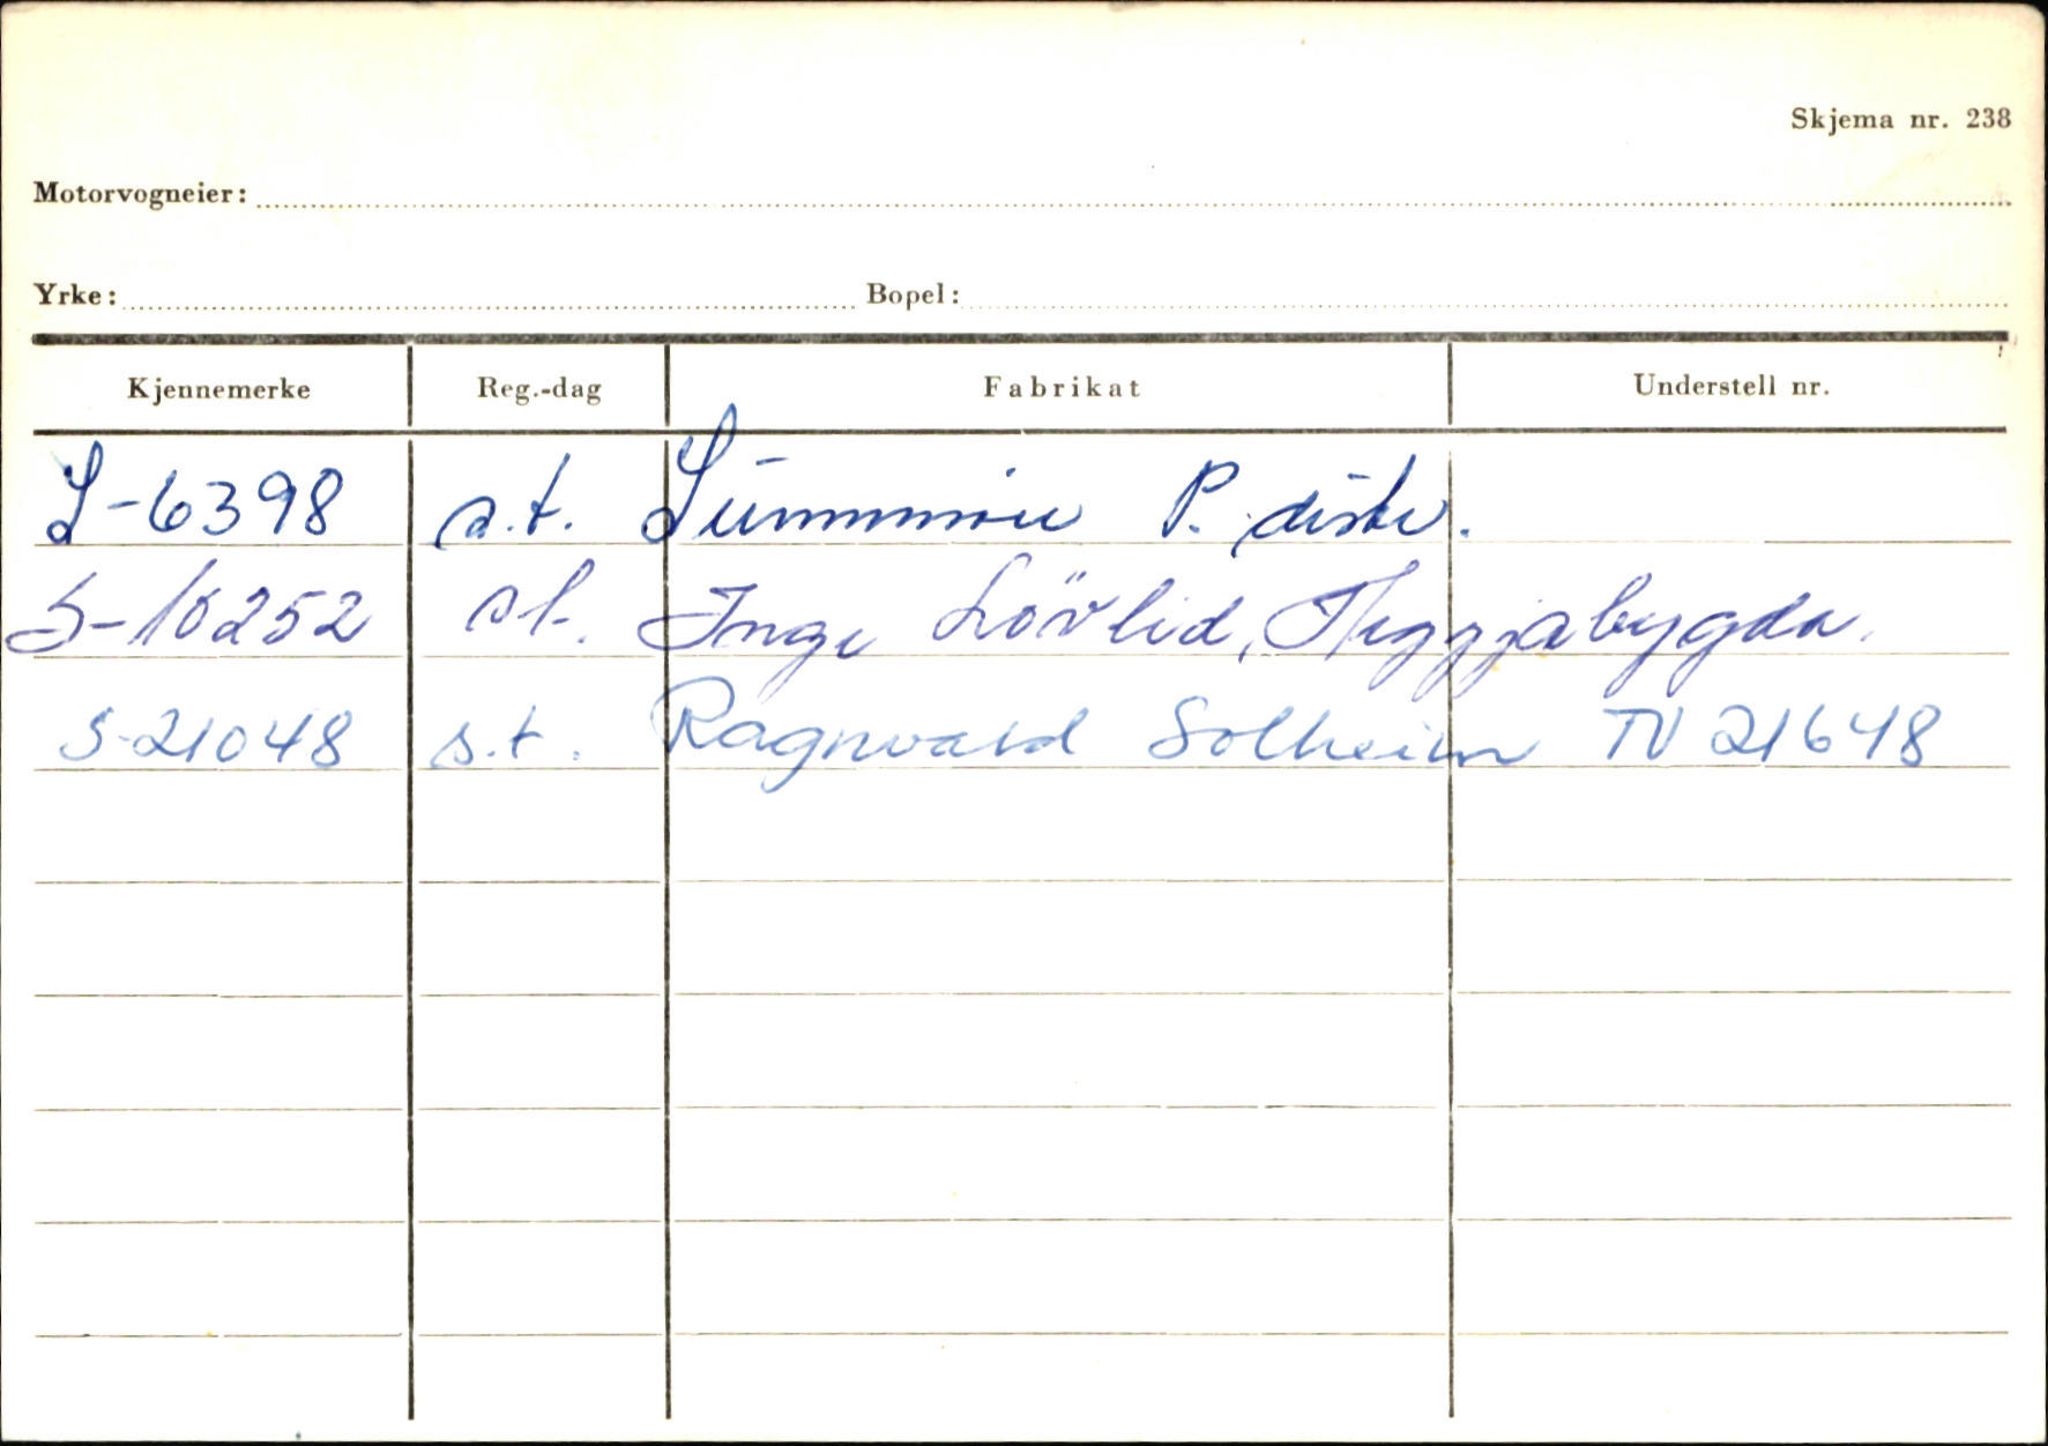 Skjema nr. 238
Motorvogneier:
Yrke: Bopel:
Kjennemerke Reg.-dag Fabrikat Understell nr.
S-6398 s.t. Sunnmøre P. distr.
S-10252 s.t. Inge Lövlid, Heggjabygda.
S-21048 s.t. Ragnvald Solheim TV 21648